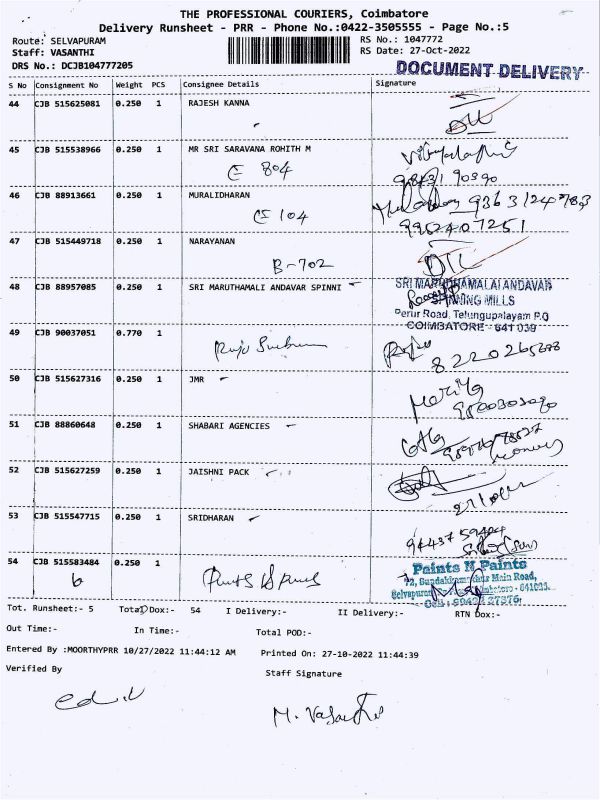 THE PROFESSIONAL COURIERS, Coimbatore
Delivery Runsheet - PRR - Phone No.:0422-3505555 - Page No.:5
Route: SELVAPURAM
Staff: VASANTHI
DRS No.: DCJB104777205
RS No.: 1047772
RS Date: 27-Oct-2022
DOCUMENT DELIVERY
S No Consignment No Weight PCS Consignee Details Signature
44 CJB 515625081 0.250 1 RAJESH KANNA
45 CJB 515538966 0.250 1 MR SRI SARAVANA ROHITH M
E 804
46 CJB 88913661 0.250 1 MURALIDHARAN
CE 104
9952407251
47 CJB 515449718 0.250 1 NARAYANAN
B-702
48 CJB 88957085 0.250 1 SRI MARUTHAMALI ANDAVAR SPINNI
SRI MARUDHAMALAI ANDAVAR
SPINNING MILLS
Perur Road, Telungupalayam P.O
COIMBATORE - 641 039
49 CJB 90037051 0.770 1
50 CJB 515627316 0.250 1 JMR
51 CJB 88860648 0.250 1 SHABARI AGENCIES
52 CJB 515627259 0.250 1 JAISHNI PACK
53 CJB 515547715 0.250 1 SRIDHARAN
54 CJB 515583484 0.250 1
6
Paints N Paints
Main Road,
Selvapuram
Tot. Runsheet:- 5 Total Dox:- 54 I Delivery:- II Delivery:- RTN Dox:-
Out Time:- In Time:- Total POD:-
Entered By :MOORTHYPRR 10/27/2022 11:44:12 AM Printed On: 27-10-2022 11:44:39
Verified By Staff Signature
M. Vasanthi